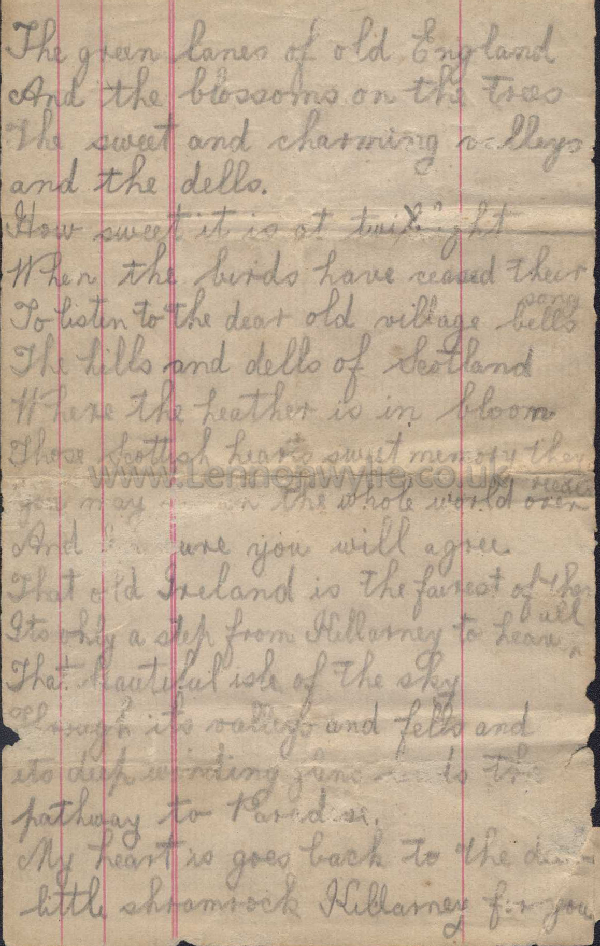 The green lanes of old England
And the blossoms on the trees
The sweet and charming valleys
and the dells.
How sweet it is at twilight
When the birds have ceased their
song
To listen to the dear old village bells
The hills and dells of Scotland
Where the heather is in bloom
Those Scottish hearts sweet memory they
www.Lennonwylie.co.uk
you may the whole world over
And sure you will agree
That old Ireland is the fairest of
all
Its only a step from Killarney to
That beautiful isle of the sky
Through its valleys and fells and
its deep winding
pathway to Paradise.
My heart is goes back to the
little shromrock Killarney for you